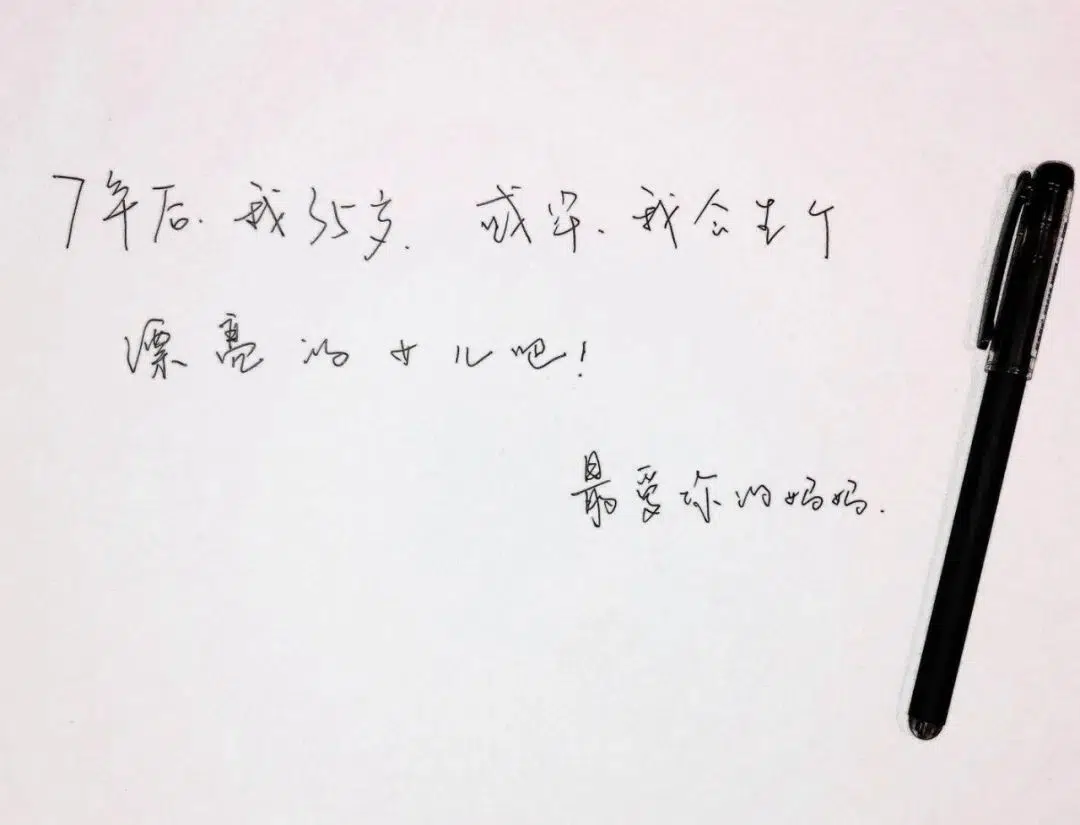 7年后.我35岁. 或罕.我会生个
漂亮的女儿吧!
最爱你的妈妈.